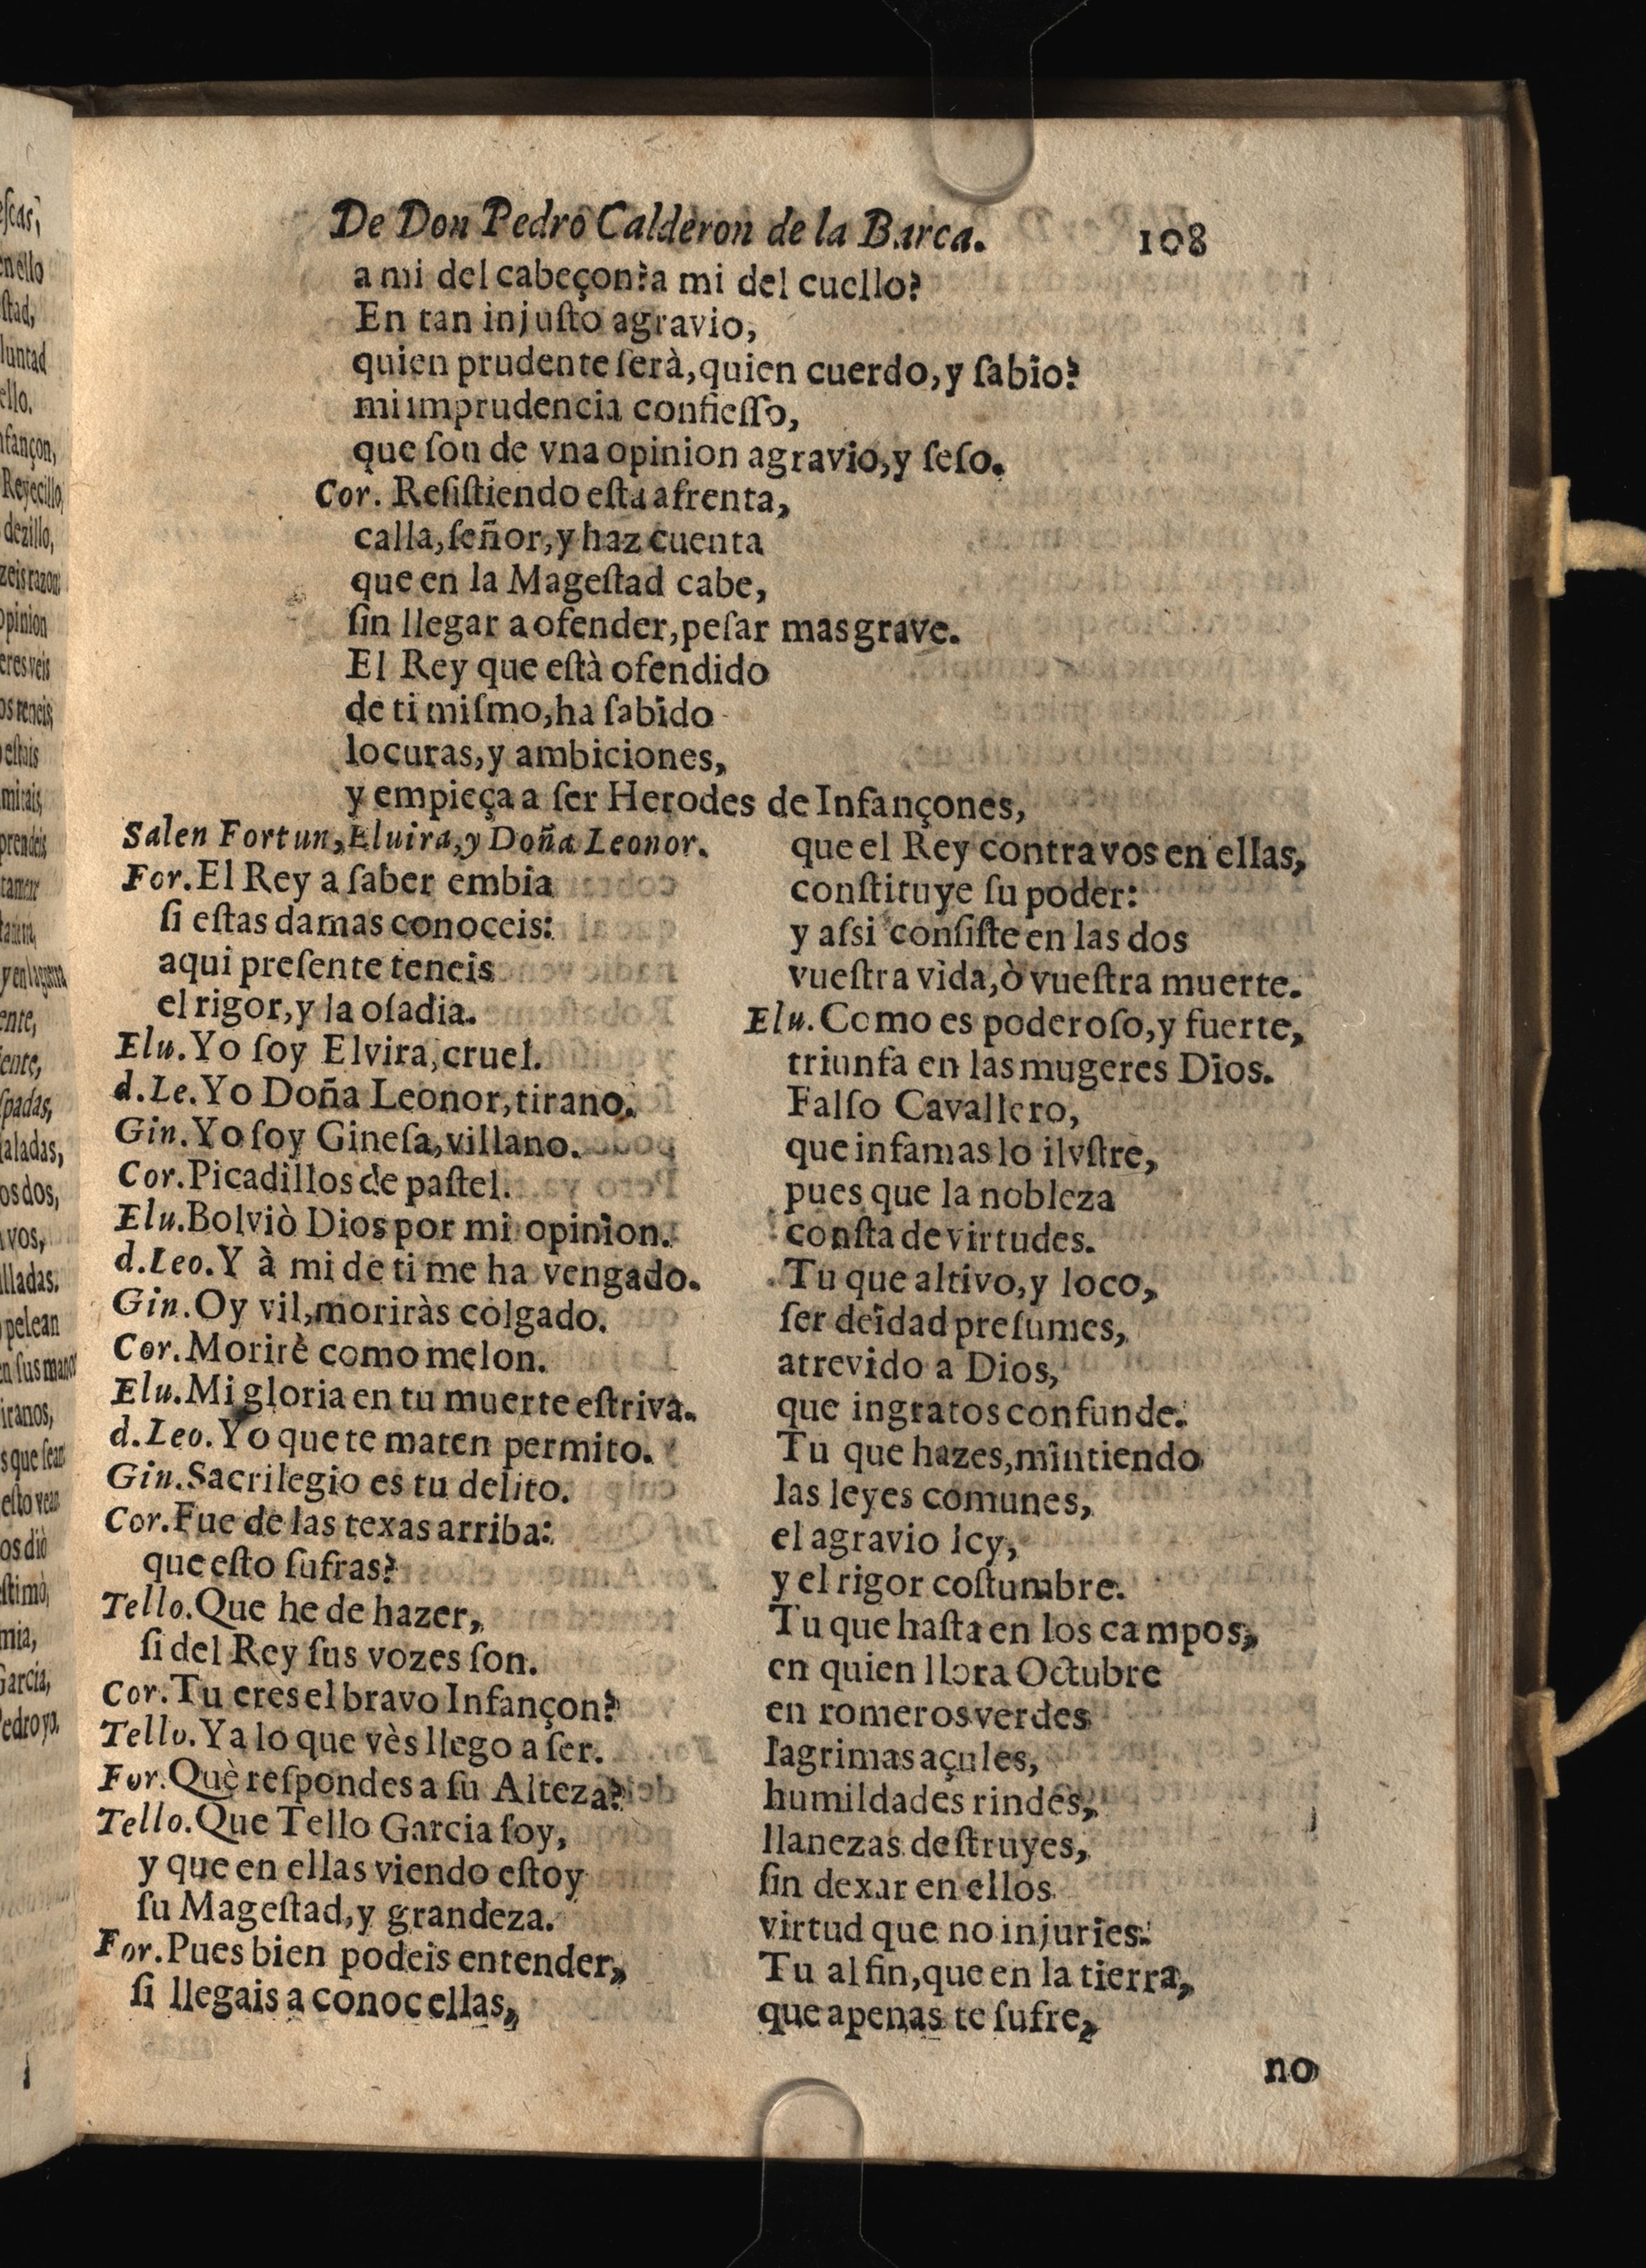 De Don Pedro Calderon de la Barca. 108
a mi del cabeçon? a mi del cuello?
En tan injuſto agravio,
quien prudente ſerà, quien cuerdo, y ſabio?
mi imprudencia confieſſo,
que ſon de vna opinion agravio, y ſeſo.
Cor. Reſiſtiendo eſta afrenta,
calla, ſeñor, y haz cuenta
que en la Mageſtad cabe,
ſin llegar a ofender, peſar mas grave.
El Rey que eſtà ofendido
de ti miſmo, ha ſabido
locuras, y ambiciones,
y empieça a ſer Herodes de Infançones,
Salen Fortun, Eluira, y Doña Leonor.
For. El Rey a ſaber embia
ſi eſtas damas conoceis:
aqui preſente teneis
el rigor, y la oſadia.
Elu. Yo ſoy Elvira, cruel.
d.Le. Yo Doña Leonor, tirano.
Gin. Yo ſoy Gineſa, villano.
Cor. Picadillos de paſtel.
Elu. Bolviò Dios por mi opinion.
d.Leo. Y à mi de ti me ha vengado.
Gin. Oy vil, moriràs colgado.
Cor. Morirè como melon.
Elu. Mi gloria en tu muerte eſtriva.
d.Leo. Yo que te maten permito.
Gin. Sacrilegio es tu delito.
Cor. Fue de las texas arriba:
que eſto ſufras?
Tello. Que he de hazer,
ſi del Rey ſus vozes ſon.
Cor. Tu eres el bravo Infançon?
Tello. Ya lo que vès llego a ſer.
For. Què reſpondes a ſu Alteza?
Tello. Que Tello Garcia ſoy,
y que en ellas viendo eſtoy
ſu Mageſtad, y grandeza.
For. Pues bien podeis entender,
ſi llegais a conocellas,
que el Rey contra vos en ellas,
conſtituye ſu poder:
y aſsi conſiſte en las dos
vueſtra vida, ò vueſtra muerte.
Elu. Como es poderoſo, y fuerte,
triunfa en las mugeres Dios.
Falſo Cavallero,
que infamas lo ilvſtre,
pues que la nobleza
conſta de virtudes.
Tu que altivo, y loco,
ſer deidad preſumes,
atrevido a Dios,
que ingratos confunde.
Tu que hazes, mintiendo
las leyes comunes,
el agravio ley,
y el rigor coſtumbre.
Tu que haſta en los campos,
en quien llora Octubre
en romeros verdes
lagrimas açules,
humildades rindes,
llanezas deſtruyes,
ſin dexar en ellos
virtud que no injuries:
Tu al fin, que en la tierra,
que apenas te ſufre,
no